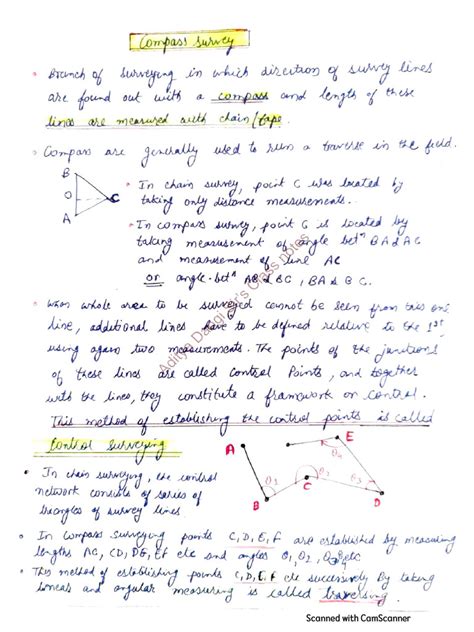 Compass Survey
• Branch of surveying in which direction of survey lines
are found out with a compass and length of these
lines are measured with chain/tape.
• Compass are generally used to run a traverse in the field.
B
O
A
C
• In chain survey, point C was located by
taking only distance measurements.
• In compass survey, point C is located by
taking measurement of angle betⁿ BA & AC
and measurement of line AC
or angle betⁿ AB & BC, BA & BC.
• When whole area to be surveyed cannot be seen from this one
line, additional lines have to be defined relative to the 1st
using again two measurements. The points of the junctions
of these lines are called Control Points, and together
with the lines, they constitute a framework or control.
This method of establishing the control points is called
Control Surveying
• In chain surveying, the control
network consists of series of
triangles of survey lines.
A
B
C
D
E
θ1
θ2
θ3
θ4
• In Compass surveying points C, D, E, F are established by measuring
lengths AC, CD, DE, EF etc and angles θ1, θ2, θ3 etc
• This method of establishing points C, D, E, F etc successively By taking
linear and angular measuring is called traversing.
Aditya Class notes
Scanned with CamScanner